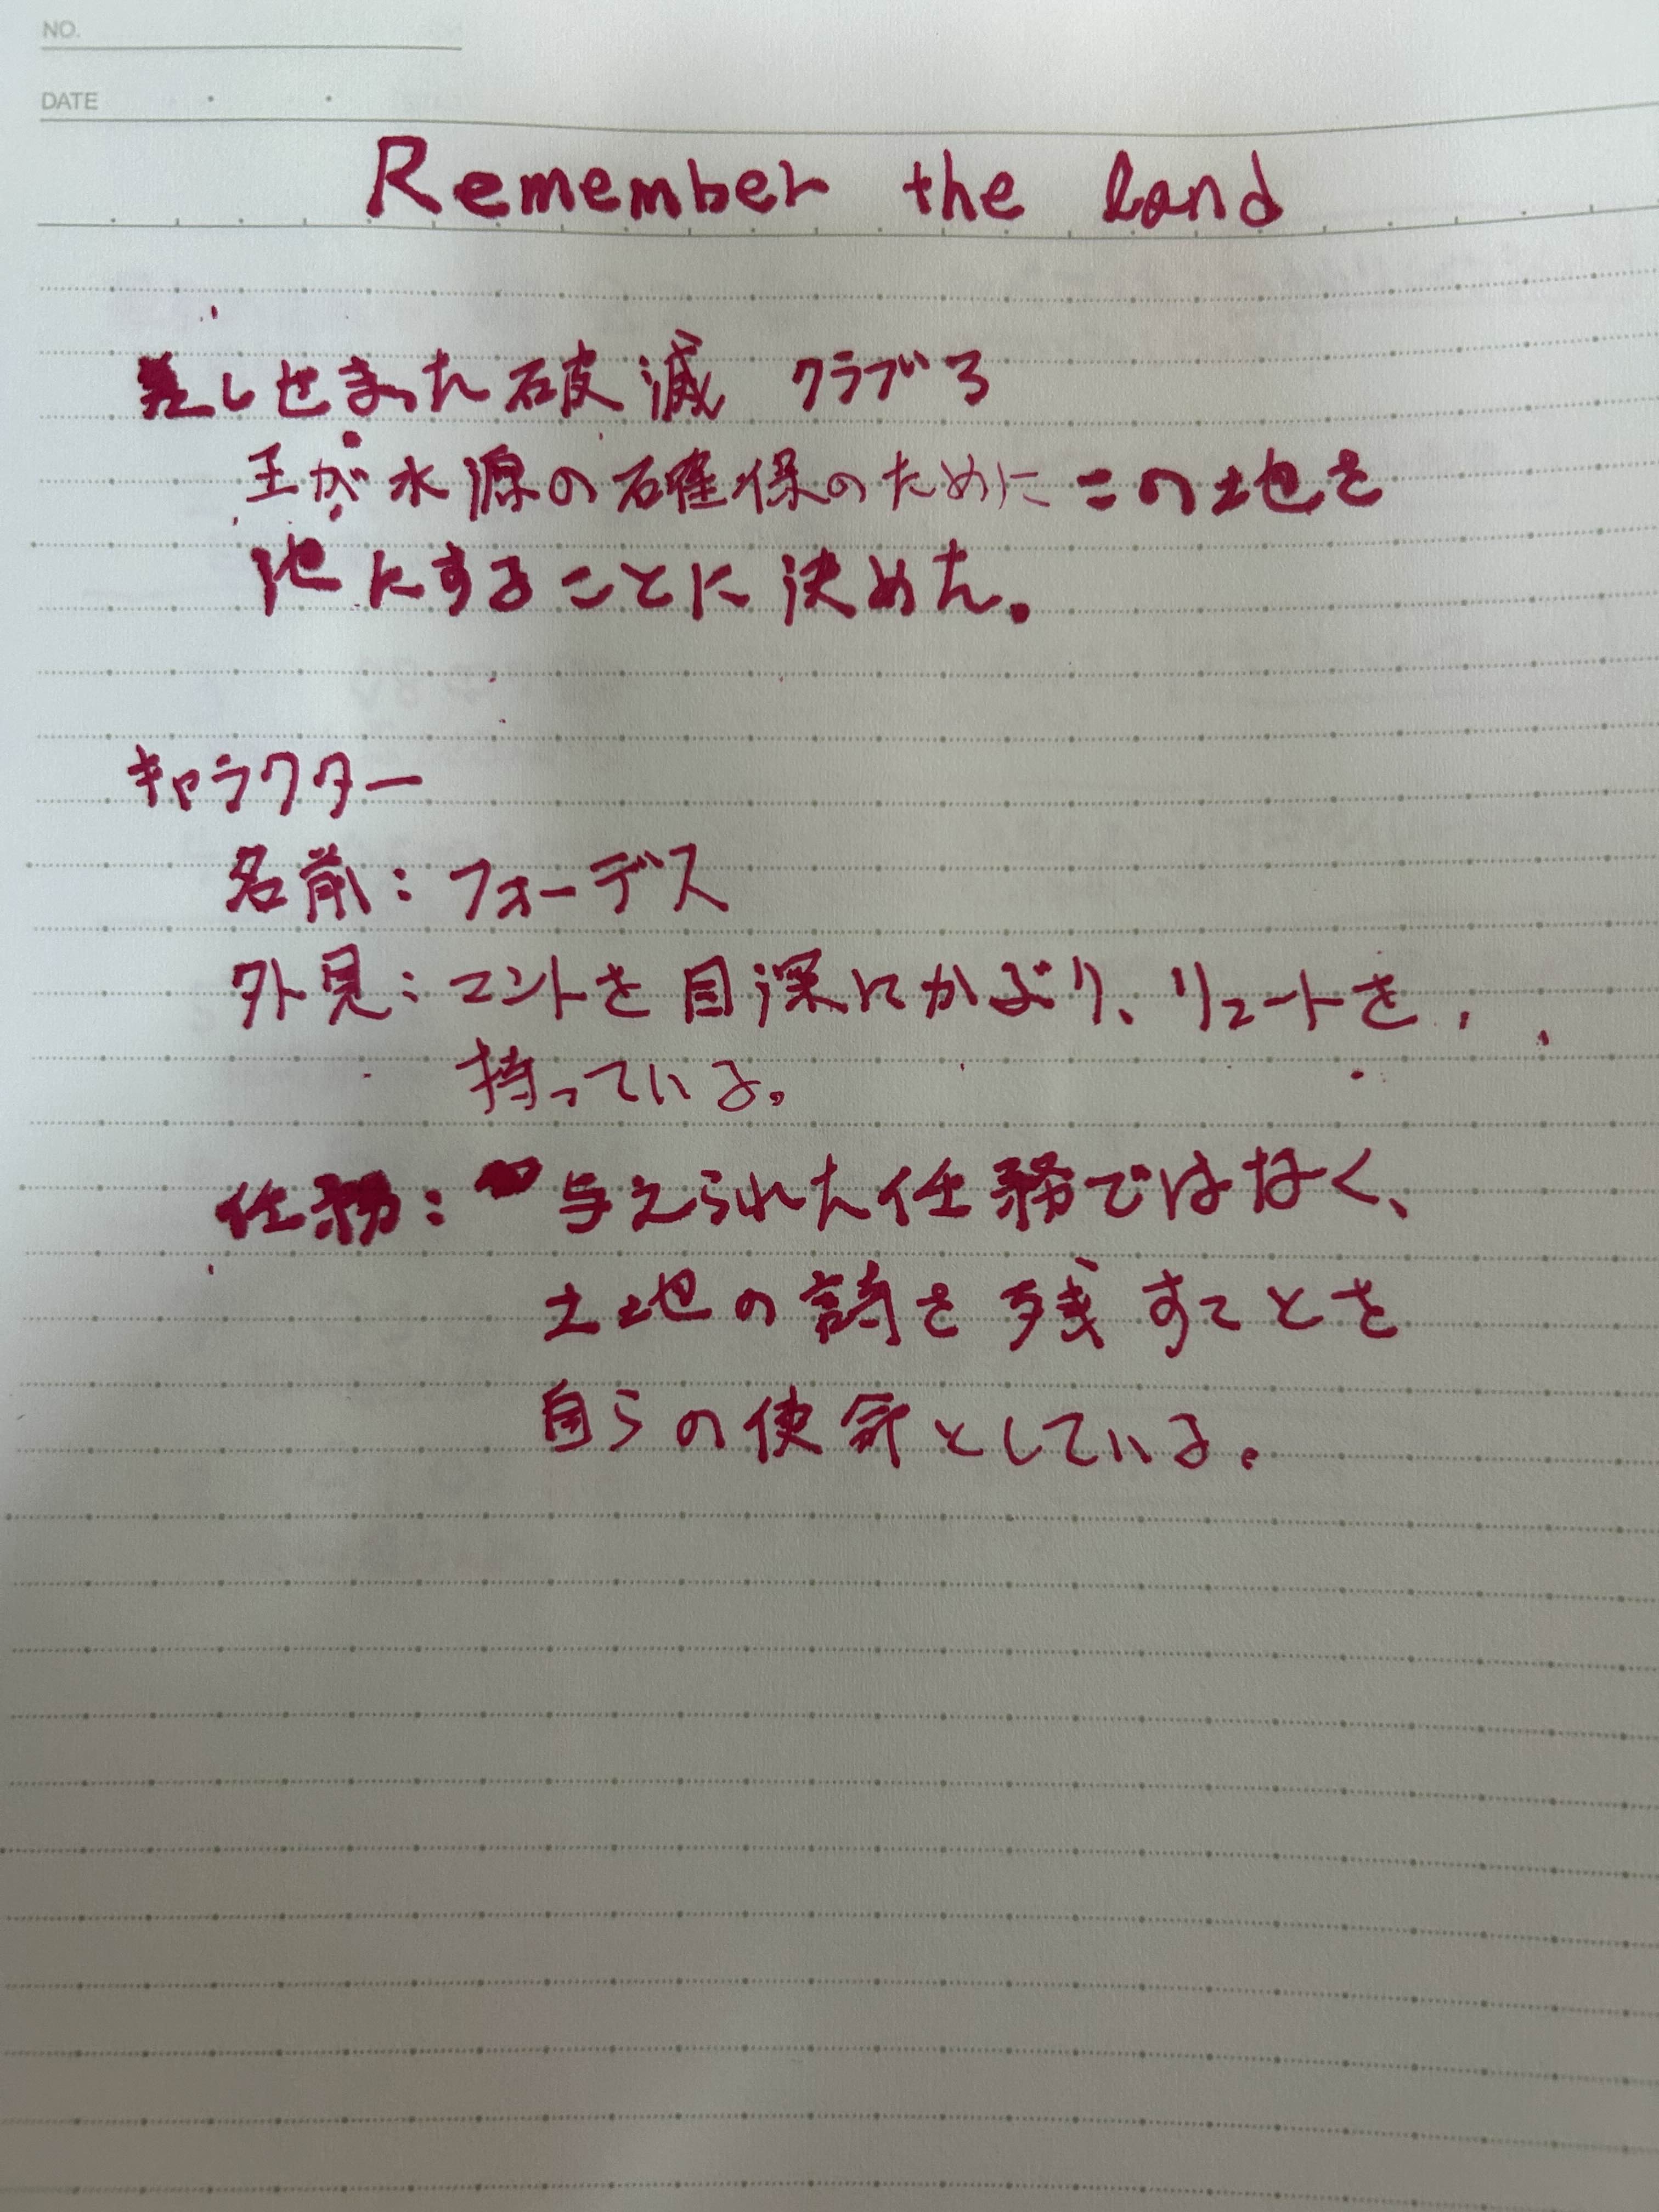 NO.
DATE
Remember the land
差しせまった破滅 クラブ3
王が水源の確保のためにこの土地を
池にすることに決めた。
キャラクター
名前：フォーデス
外見：マントを目深にかぶり、リュートを
持っている。
任務：与えられた任務ではなく、
土地の詩を残すことを
自らの使命としている。